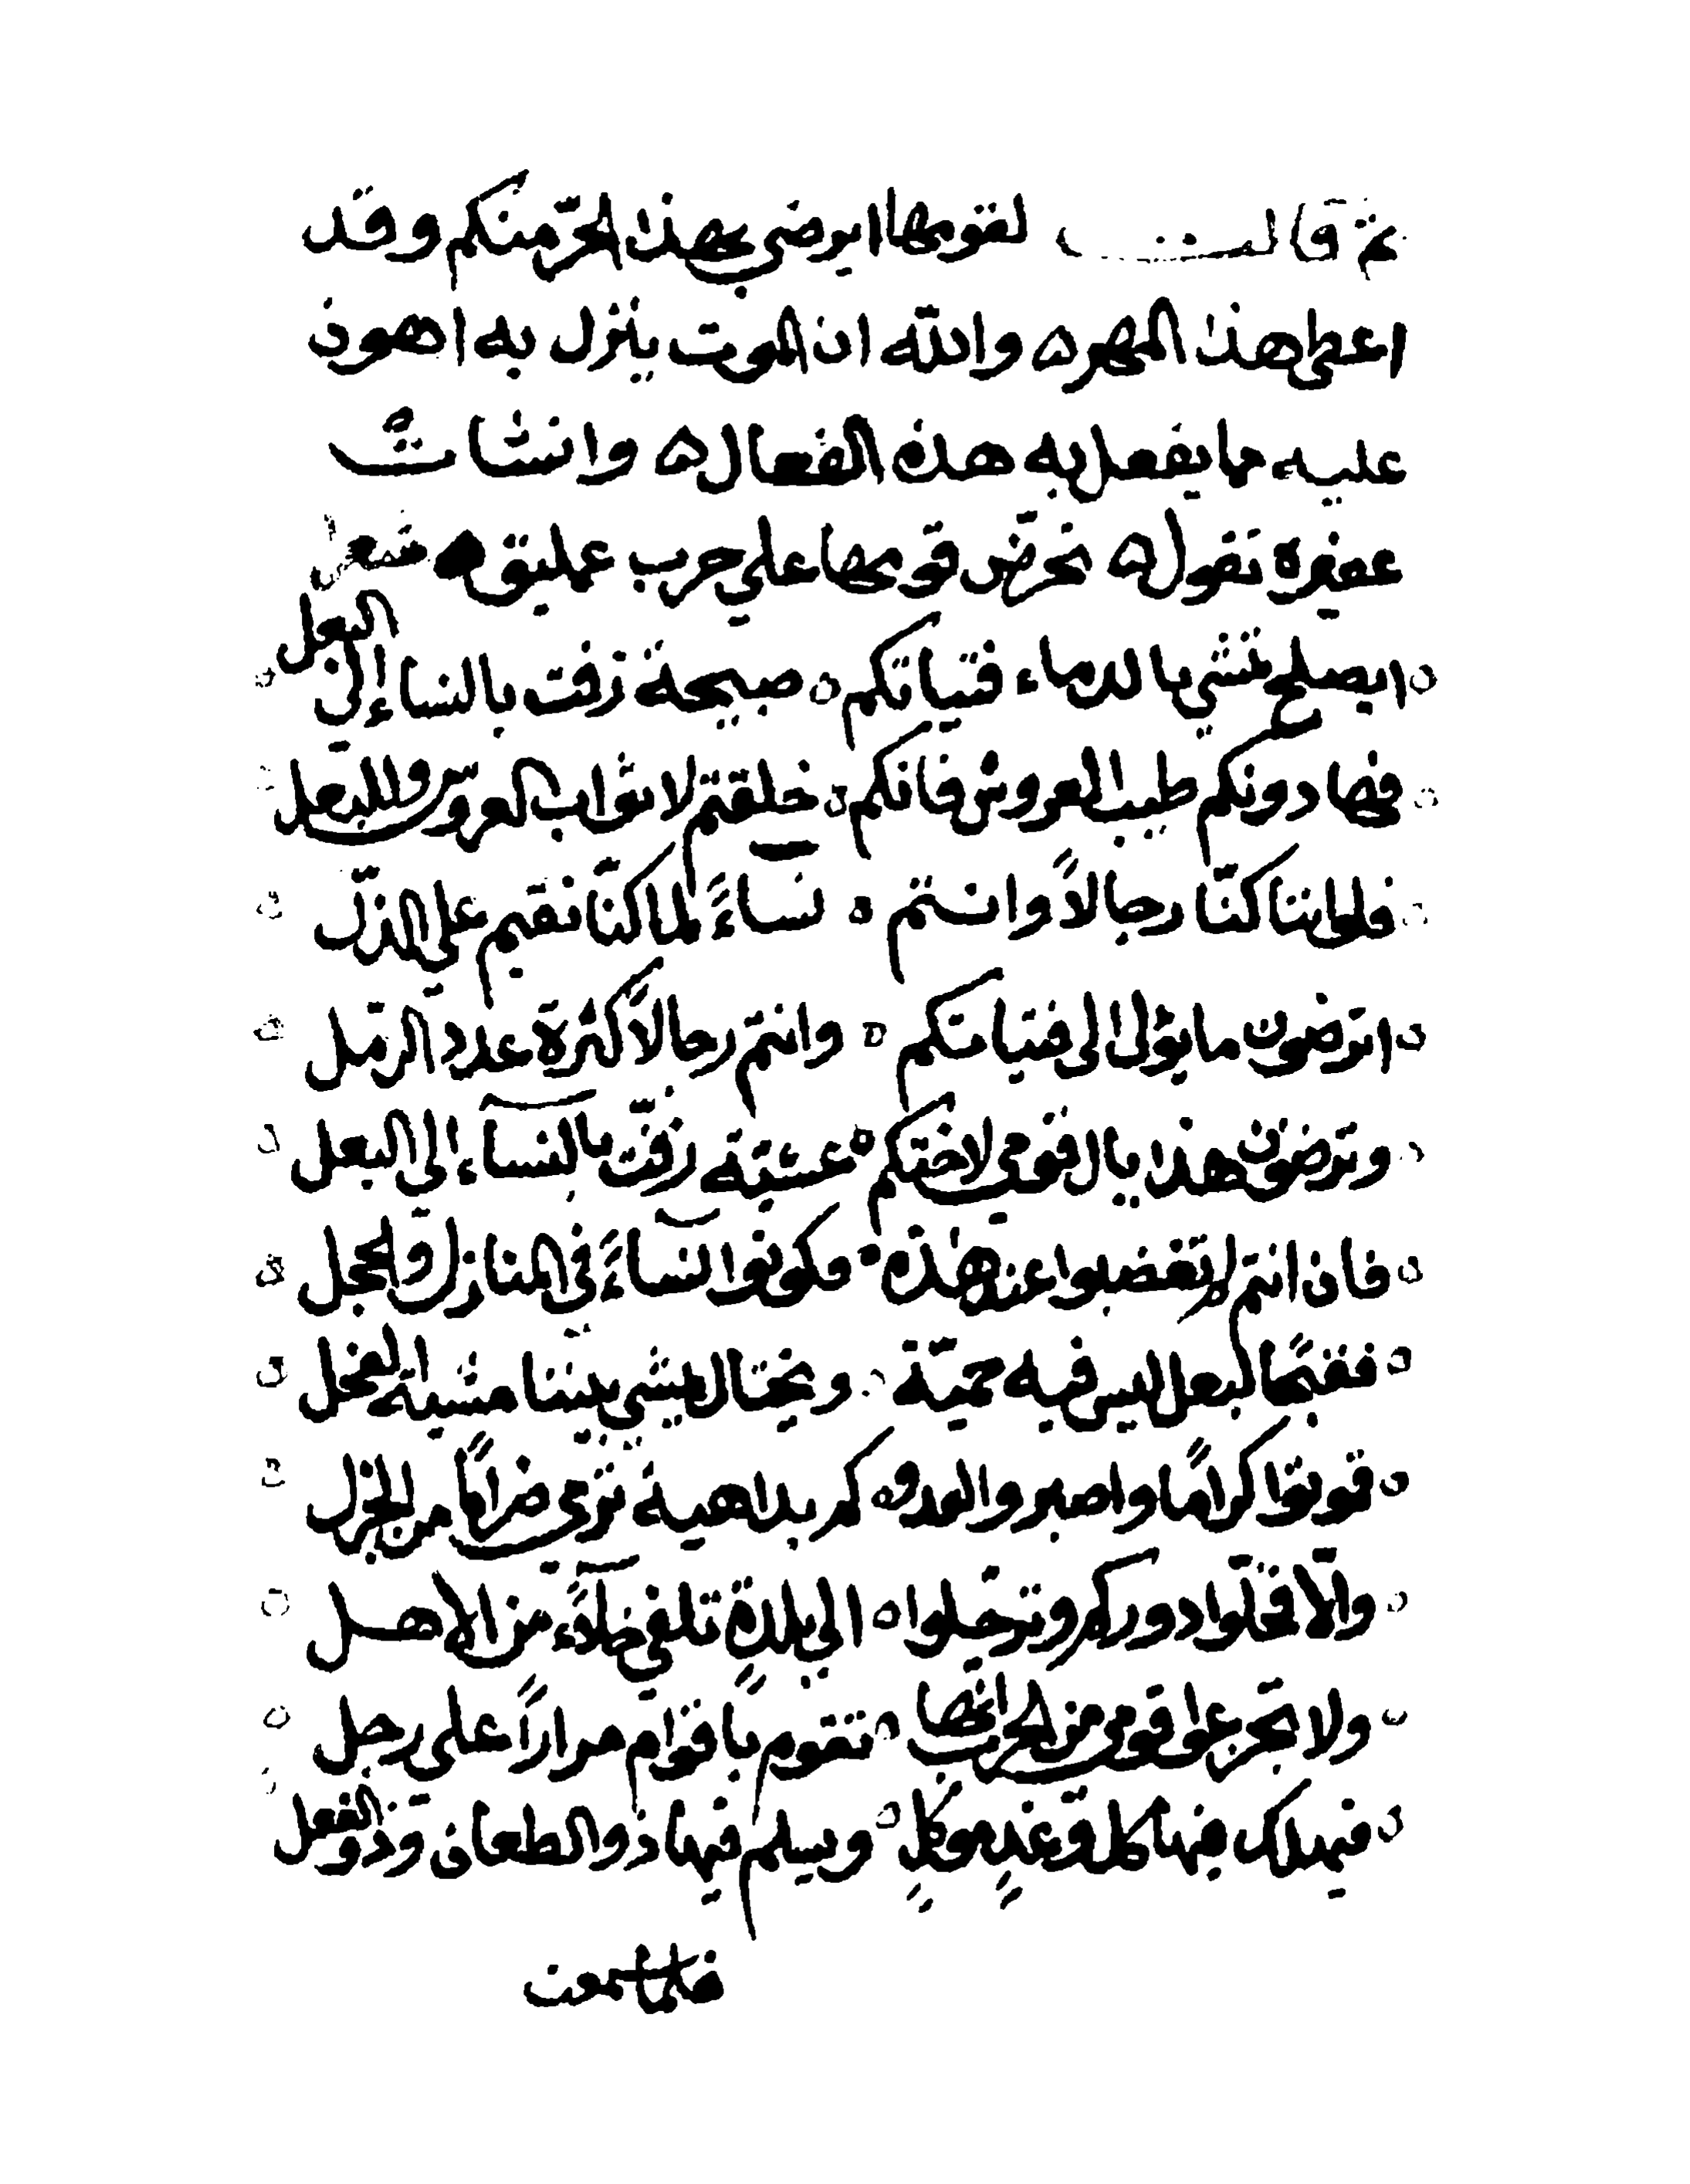 ثم قالت لقومها ايرضى بهذا الحرّ منكم وقد
اعطى هذا المهر ه والله ان الموت ينزل به اهون
عليه مما يفعل به هذه الفعال ه وانشات
عفيره تقول ه تحرّض قومها على حرب عمليق شعرا
ايصلح تمشي بالدماء فتياتكم ه صبيحة زفت بالنساء إلى البعل
فها دونكم طيب العروس فانكم ه خلقتم لاثواب العروس وللبعل
فلو اننا كنّا رجالاً وانتم ه نساءً لما كنّا نقيم على الذلّ
اترضون ما يؤتى الى فتياتكم ه وانتم رجالاً كثرة عدد الرمل
وترضون هذا يال قومي لاختكم ه عشيّة زفّت بالنساء الى البعل
فان انتم لم تغضبوا عند هذه ه فكونوا نساءً في المنازل والحجل
فقبحًا لبعل ليس فيه حميّة ه ويختال يمشي بيننا مشية الفحل
فموتوا كرامًا واصبروا لعدوكم بداهية ترمى ضرامًا من الجزل
والّا فخلّوا دوركم وترحّلوا ه الى بلدةٍ تلفى خلآءً من الاهل
ولا تجزعوا قومي من الحرب انها ه تقوم باقوام مرارًا على رجل
فيهلك فيها كل وغدٍ موكلٍ ه ويسلم فيها ذو الطعان وذو الفعل
فلما سمعت